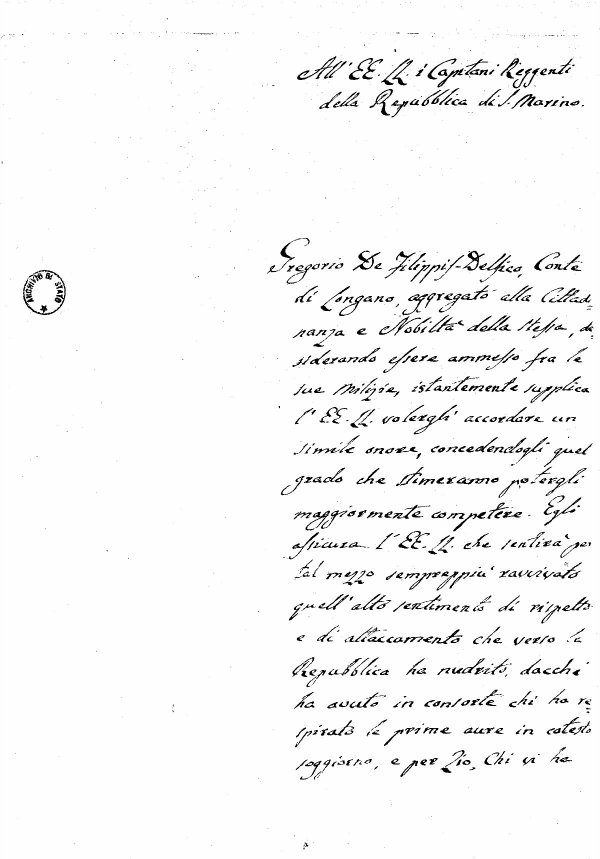 All' EE. LL. i Capitani Reggenti
della Repubblica di S. Marino.
Gregorio De Filippis-Delfico, Conte
di Longano, aggregato alla Cittadi=
nanza e Nobiltà della stessa, de=
siderando essere ammesso fra le
sue Milizie, istantemente supplica
l' EE. LL. volergli accordare un
simile onore, concedendogli quel
grado che stimeranno potergli
maggiormente competere. Egli
assicura l' EE. LL. che sentirà per
tal mezzo semprepiù ravvivato
quell' alto sentimento di rispetto
e di attaccamento che verso la
Repubblica ha nudrito, dacchè
ha avuto in consorte chi ha re=
spirato le prime aure in cotesto
soggiorno, e per Zio, Chi vi ha
ARCHIVIO DI STATO